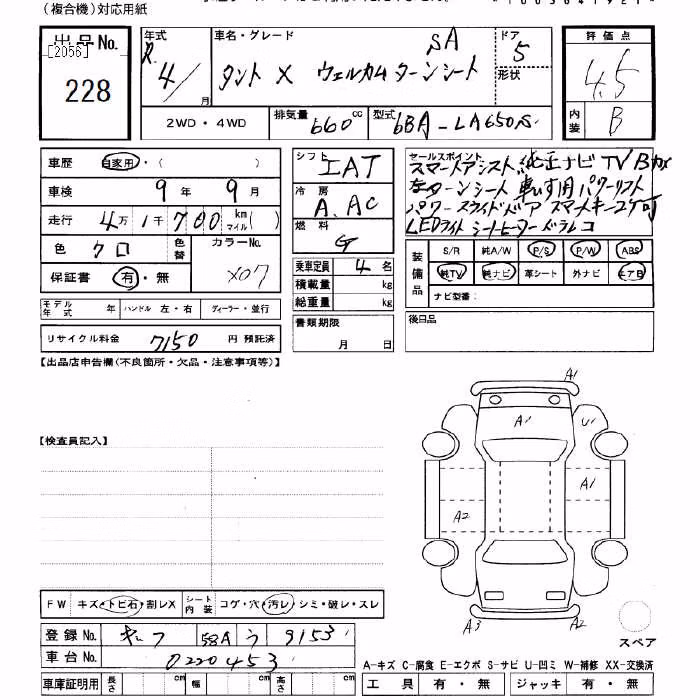 (複合機)対応用紙
出品No.
[2056]
228
年式
R.4/
月
車名・グレード
SA
タント X ウェルカムターンシート
ドア
5
形状
評価点
4.5
内装
B
2WD・4WD
排気量
660 cc
型式
6BA-LA650S
車歴 自家用・( )
車検 9年 9月
走行 4万1千700km マイル( )
色 クロ 色替 カラーNo. X07
保証書 有・無
シフト IAT
冷房 A.AC
燃料 G
乗車定員 4 名
積載量 kg
総重量 kg
セールスポイント
スマートアシスト 純正ナビ TV Bカメ
左ターンシート 車いす用パワーリフト
パワースライドドア スマートキー2ケ可
LEDライト シートヒーター ドラレコ
装備品
S/R 純A/W P/S P/W ABS
純TV 純ナビ 革シート 外ナビ エアB
ナビ型番:
モデル年式 年 ハンドル 左・右 ディーラー・並行
書類期限
月 日
後日品
リサイクル料金 7150 円 預託済
【出品店申告欄(不良箇所・欠品・注意事項等)】
【検査員記入】
A1
A1 U1
A1
A2
A3 A2
スペア
FW キズ・トビ石・割レX シート内装 コゲ・穴・汚レ・シミ・破レ・スレ
登録No. 58A う 9153
車台No. 0220453
A-キズ C-腐食 E-エクボ S-サビ U-凹ミ W-補修 XX-交換済
車庫証明用 長さ cm 幅 cm 高さ cm
工具 有・無 ジャッキ 有・無